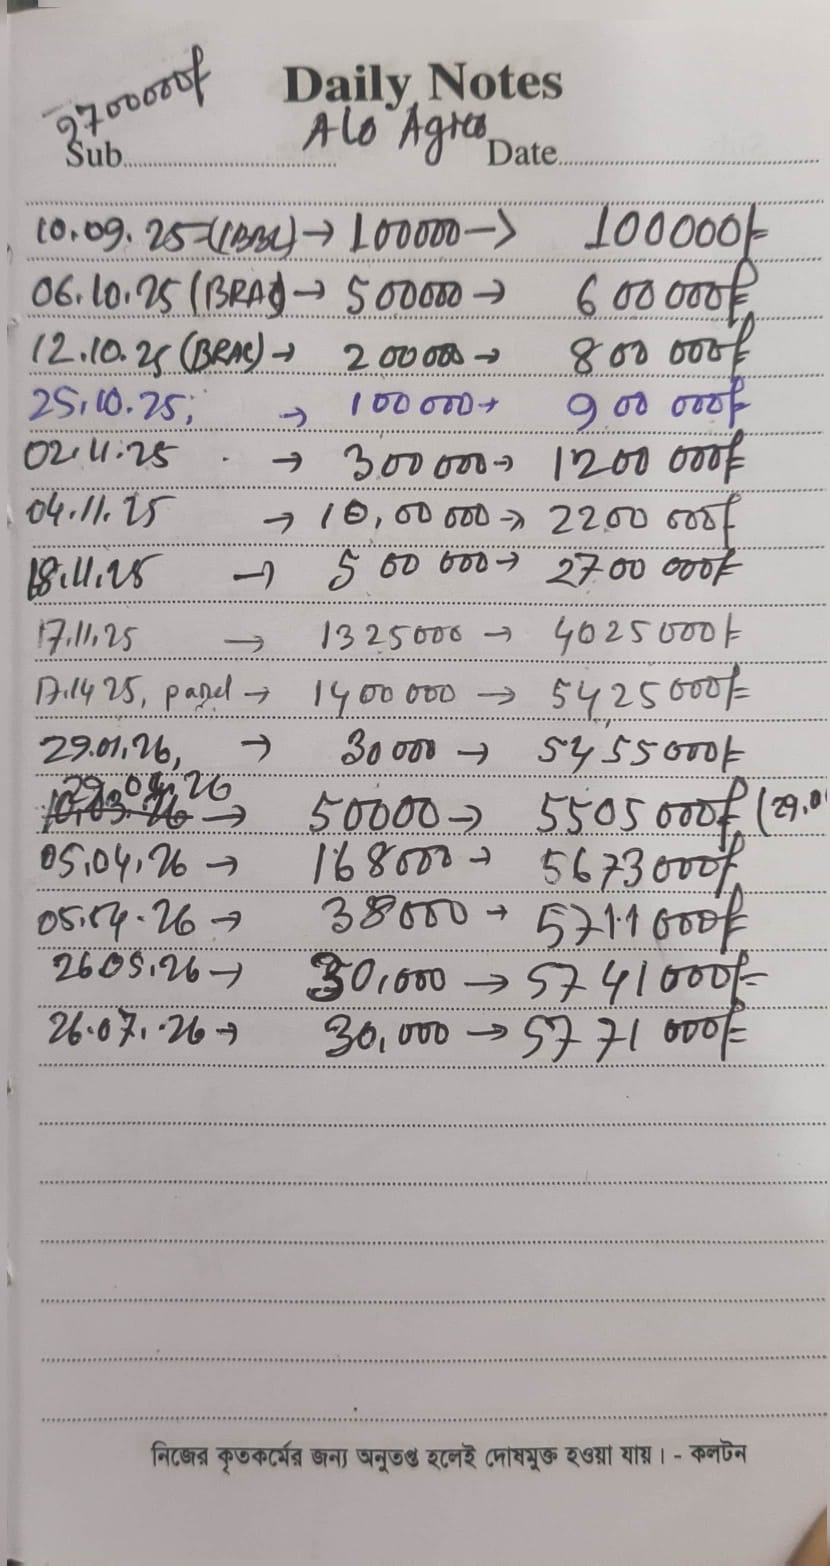 2700000/-
Daily Notes
Alo Agro
Sub. Date
10.09.25 (IBBL) → 100000 → 100000/=
06.10.25 (BRAC) → 500000 → 600000/=
12.10.25 (BRAC) → 200000 → 800000/=
25.10.25, → 100000 → 900000/=
02.11.25 → 300000 → 1200000/=
04.11.25 → 10,00000 → 2200000/=
18.11.25 → 500000 → 2700000/=
17.11.25 → 1325000 → 4025000/=
25, panel → 1400000 → 5425000/=
29.01.26, → 30000 → 5455000/=
26 → 50000 → 5505000/= (29.0
05.04.26 → 168000 → 5673000/=
05.04.26 → 38000 → 5711000/=
26 05.26 → 30,000 → 5741000/=
26.07.26 → 30,000 → 5771000/=
নিজের কৃতকর্মের জন্য অনুতপ্ত হলেই দোষমুক্ত হওয়া যায়। - কলটন